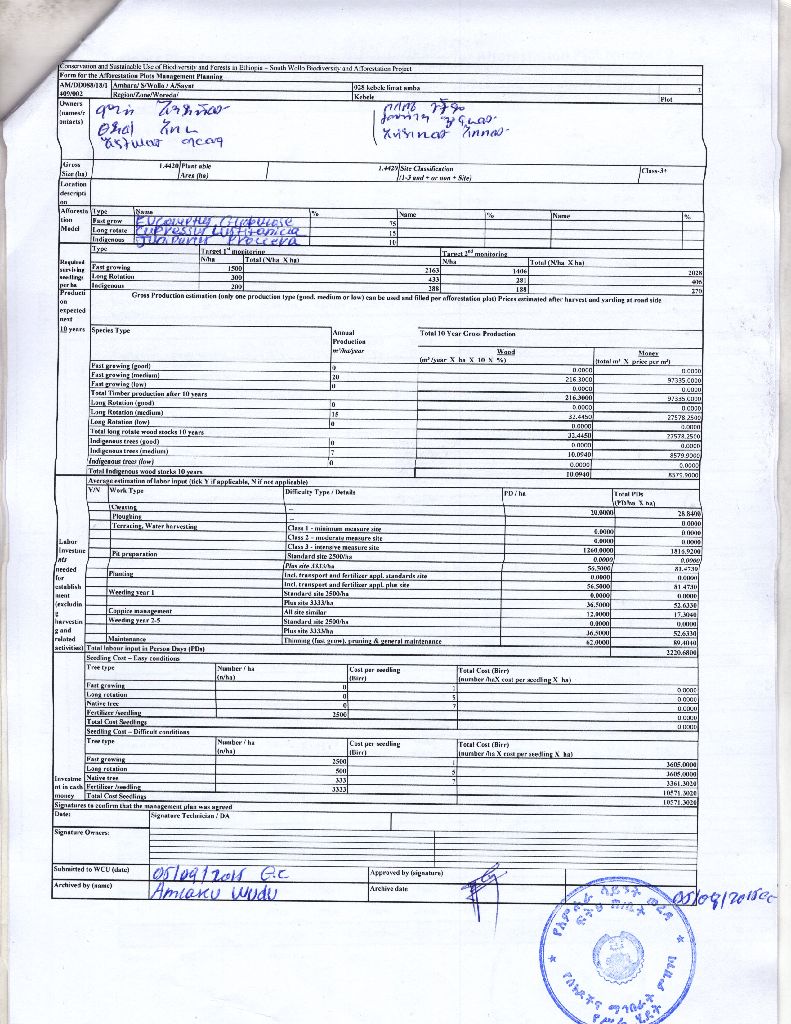 Conservation and Sustainable Use of Biodiversity and Forests in Ethiopia – South Wollo Biodiversity and Afforestation Project
Form for the Afforestation Plots Management Planning
AM/DD088/18/1 Amhara/ S/Wollo / A/Sayat 028 kebele limat amba 1
409/002 Region/Zone/Woreda/ Kebele Plot
Owners
(names/c
ontacts)
Gross 1.4420 Plant able 1.4420 Site Classification Class-3+
Size (ha) Area (ha) (1-3 and + or non + Site)
Location
descripti
on
Afforesta Type Name % Name % Name %
tion Fast grow 75
Model Long rotate Cupressus 15
Indigenous 10
Type Target 1st monitoring Target 2nd monitoring
Required N/ha Total (N/ha X ha) N/ha Total (N/ha X ha)
surviving Fast growing 1500 2163 1406 2028
seedlings Long Rotation 300 433 281 406
per ha Indigenous 200 288 188 270
Producti Gross Production estimation (only one production type (good, medium or low) can be used and filled per afforestation plot) Prices estimated after harvest and yarding at road side
on
expected
next
10 years Species Type Annual Total 10 Year Gross Production
Production Wood Money
m³/ha/year (m³/year X ha X 10 X %) (total m³ X price per m³)
Fast growing (good) 0 0.0000 0.0000
Fast growing (medium) 20 216.3000 97335.0000
Fast growing (low) 0 0.0000 0.0000
Total Timber production after 10 years 216.3000 97335.0000
Long Rotation (good) 0 0.0000 0.0000
Long Rotation (medium) 15 32.4450 27578.2500
Long Rotation (low) 0 0.0000 0.0000
Total long rotate wood stocks 10 years 32.4450 27578.2500
Indigenous trees (good) 0 0.0000 0.0000
Indigenous trees (medium) 7 10.0940 8579.9000
Indigenous trees (low) 0 0.0000 0.0000
Total Indigenous wood stocks 10 years 10.0940 8579.9000
Average estimation of labor input (tick Y if applicable, N if not applicable)
Y/N Work Type Difficulty Type / Details PD / ha Total PDs
(PD/ha X ha)
Clearing -- 20.0000 28.8400
Ploughing -- 0.0000
Terracing, Water harvesting Class 1 - minimum measure site 0.0000 0.0000
Class 2 - moderate measure site 0.0000 0.0000
Class 3 - intensive measure site 1260.0000 1816.9200
Pit preparation Standard site 2500/ha 0.0000 0.0000
Plus site 3333/ha 56.5000 81.4730
Planting Incl. transport and fertilizer appl. standards site 0.0000 0.0000
Incl. transport and fertilizer appl. plus site 56.5000 81.4730
Weeding year 1 Standard site 2500/ha 0.0000 0.0000
Plus site 3333/ha 36.5000 52.6330
Coppice management All site similar 12.0000 17.3040
Weeding year 2-5 Standard site 2500/ha 0.0000 0.0000
Plus site 3333/ha 36.5000 52.6330
Maintenance Thinning (fast grow), pruning & general maintenance 62.0000 89.4040
Labor
Investme
nts
needed
for
establish
ment
(excludin
g
harvestin
g and
related
activities) Total labour input in Person Days (PDs) 2220.6800
Seedling Cost – Easy conditions
Tree type Number / ha Cost per seedling Total Cost (Birr)
(n/ha) (Birr) (number /haX cost per seedling X ha)
Fast growing 0 1 0.0000
Long rotation 0 5 0.0000
Native tree 0 7 0.0000
Fertilizer /seedling 2500 0.0000
Total Cost Seedlings 0.0000
Seedling Cost – Difficult conditions
Tree type Number / ha Cost per seedling Total Cost (Birr)
(n/ha) (Birr) (number /ha X cost per seedling X ha)
Fast growing 2500 1 3605.0000
Long rotation 500 5 3605.0000
Investme Native tree 333 7 3361.3020
nt in cash Fertilizer /seedling 3333 10571.3020
money Total Cost Seedlings 10571.3020
Signatures to confirm that the management plan was agreed
Date: Signature Technician / DA
Signature Owners:
Submitted to WCU (date) 05/09/2015 G.C Approved by (signature) 05/09/2015
Archived by (name) Amlaku Wudu Archive date